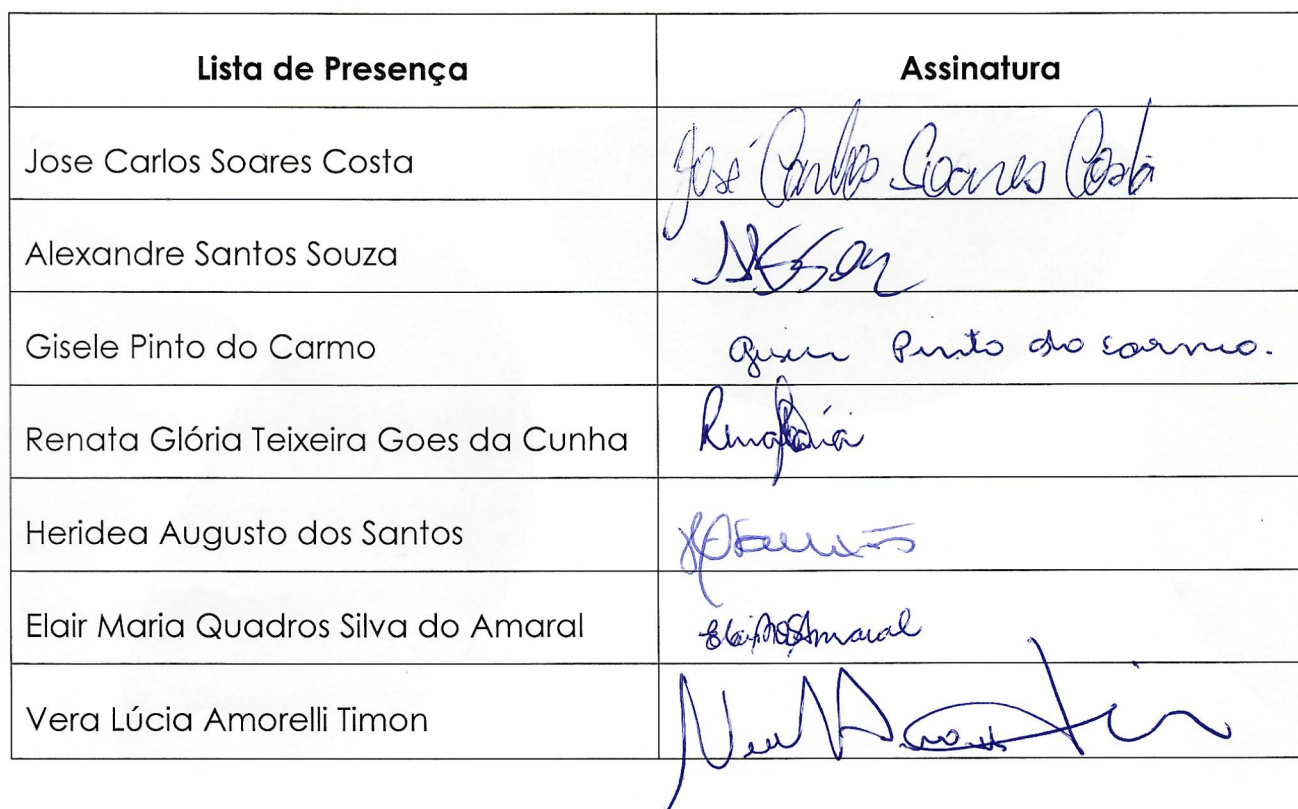 Lista de Presença Assinatura
Jose Carlos Soares Costa José Carlos Soares Costa
Alexandre Santos Souza
Gisele Pinto do Carmo Pinto do Carmo.
Renata Glória Teixeira Goes da Cunha
Heridea Augusto dos Santos
Elair Maria Quadros Silva do Amaral Amaral
Vera Lúcia Amorelli Timon